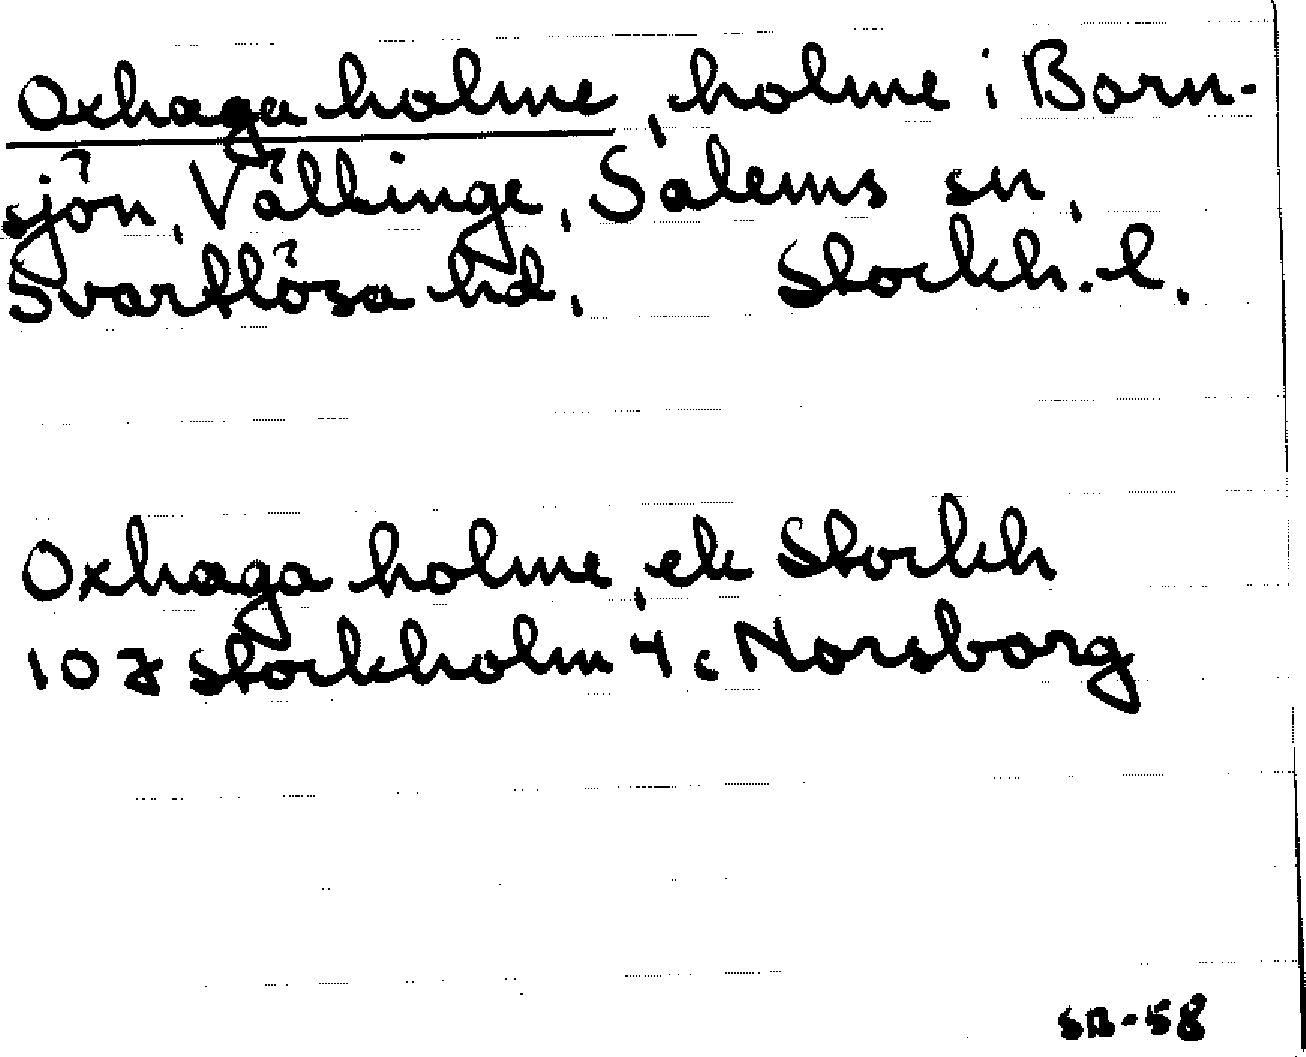 Oxhaga holme, holme i Born-
sjön, Vällinge, Salems sn,
Svartlösa hd, Stockh. l.
Oxhaga holme, ek Stockh
10J Stockholm 4c Norsborg
SB-58